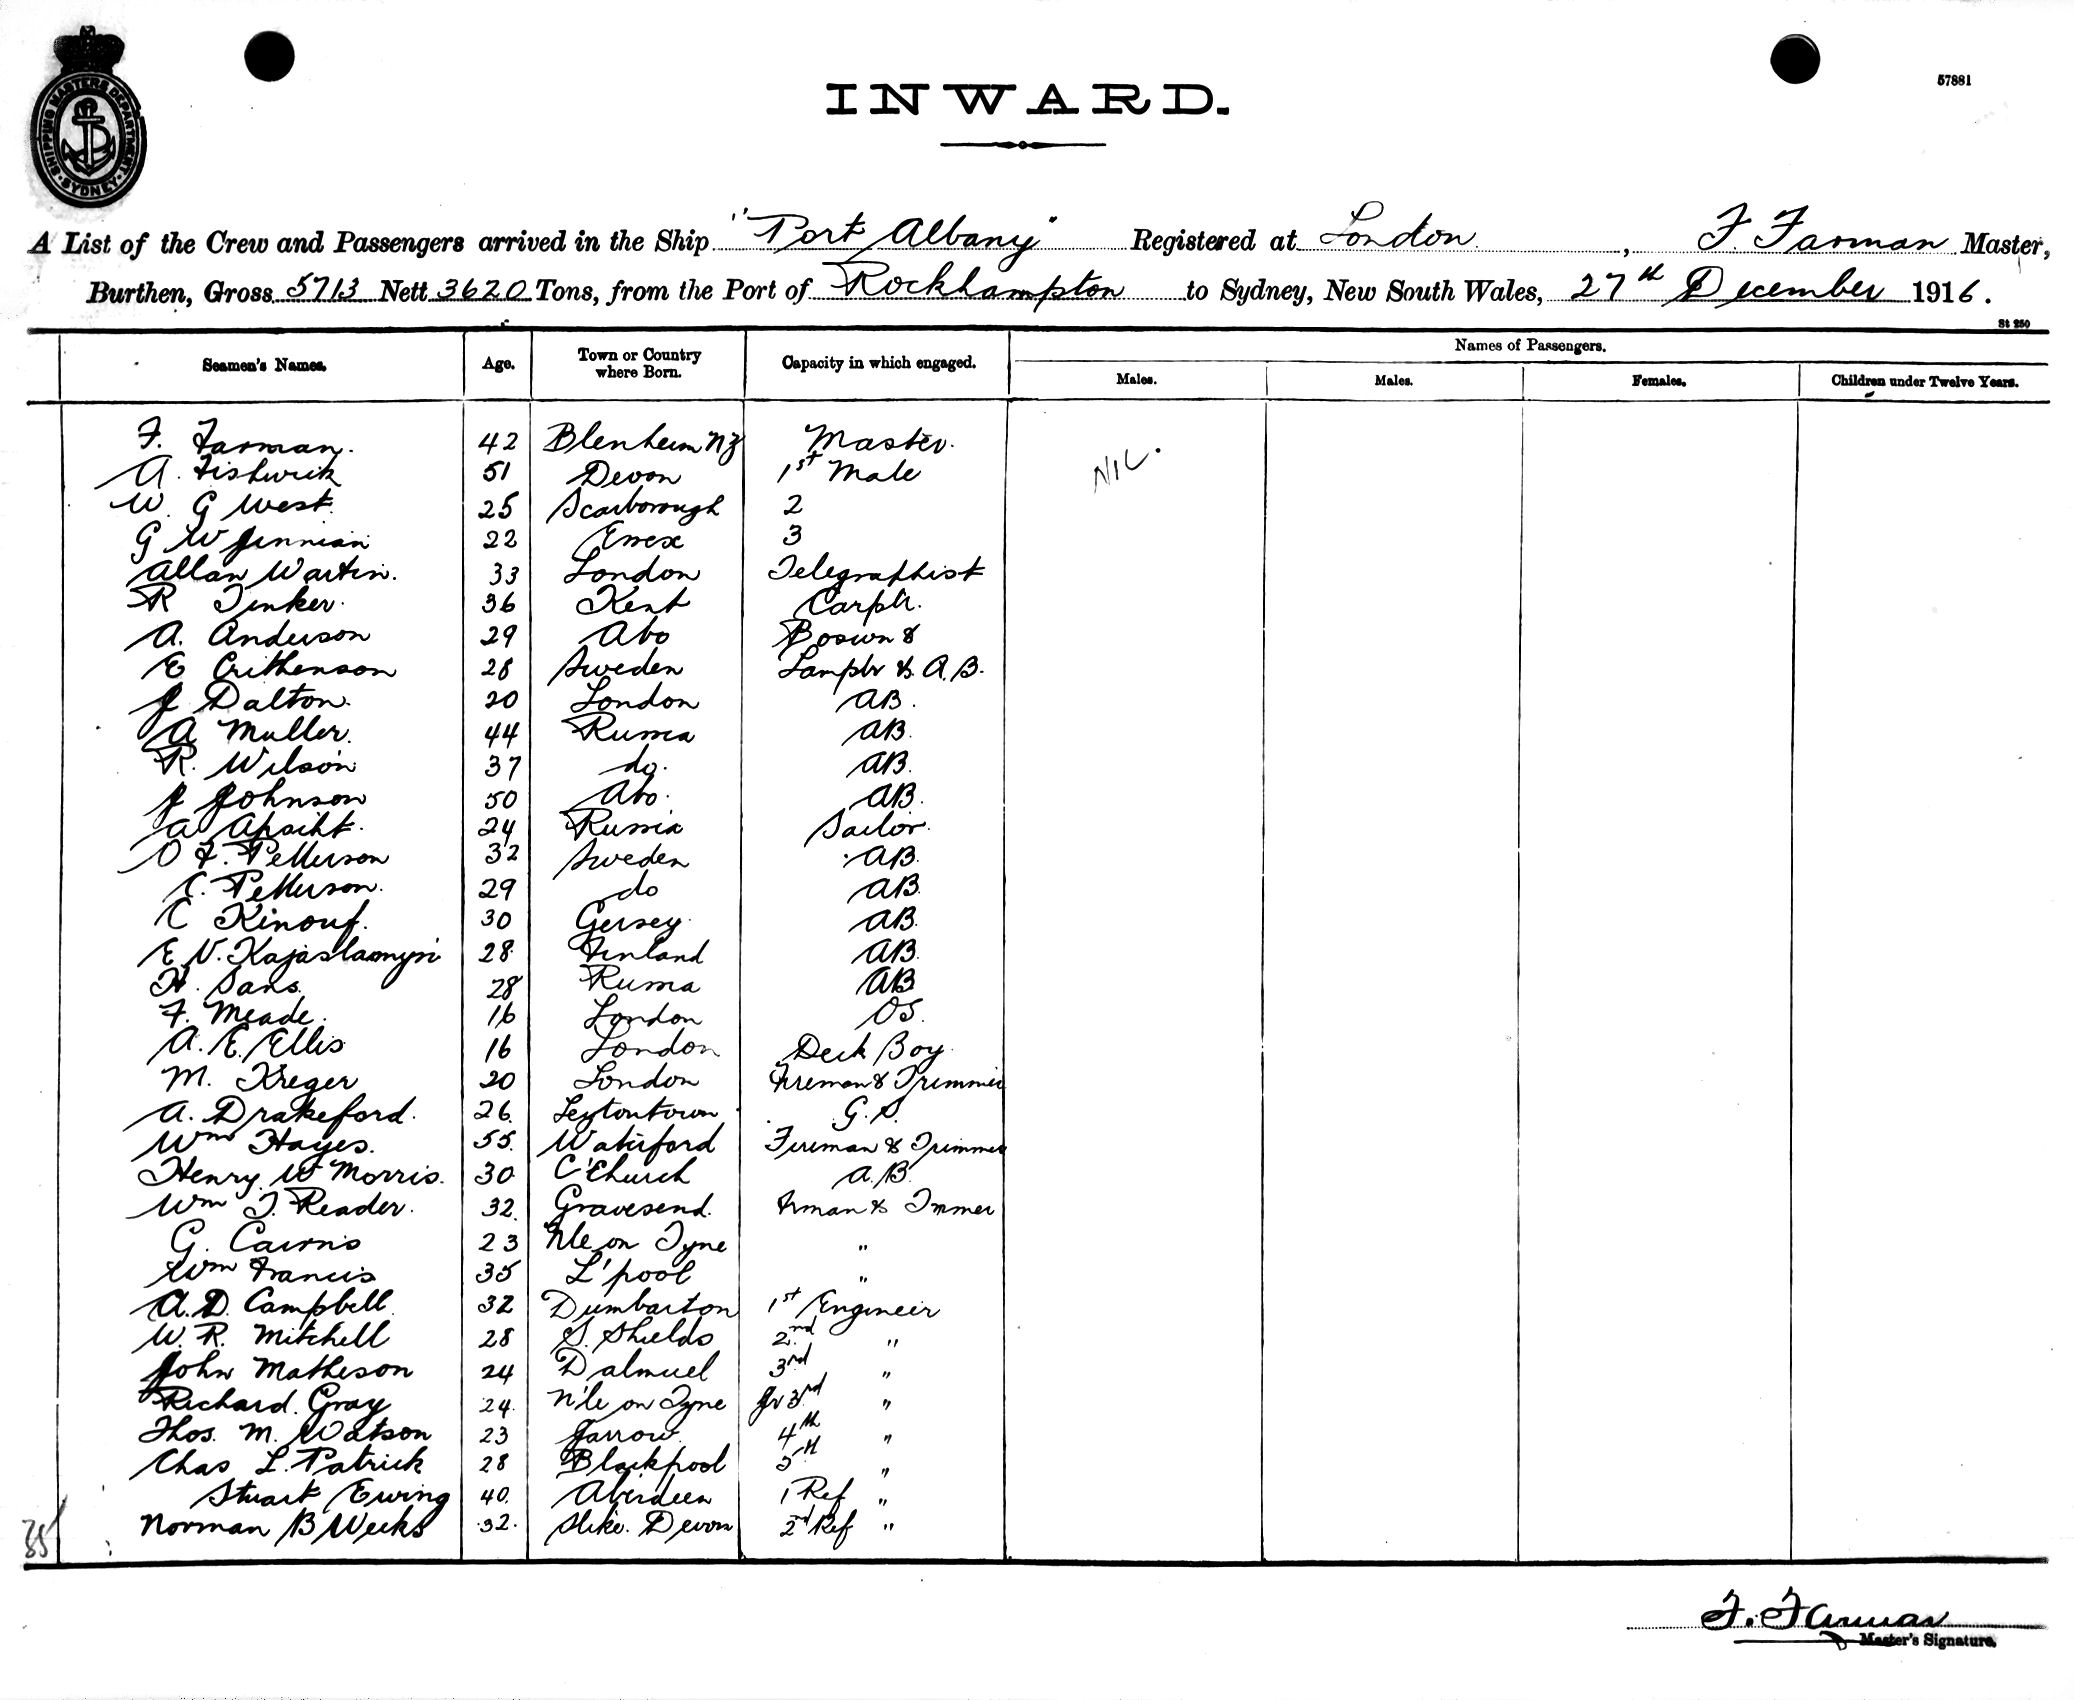 SHIPPING MASTERS DEPARTMENT SYDNEY
57881
INWARD.
A List of the Crew and Passengers arrived in the Ship "Port Albany" Registered at London, F. Farman Master,
Burthen, Gross 5713 Nett 3620 Tons, from the Port of Rockhampton to Sydney, New South Wales, 27th December 1916.
St 250
Seamen's Names. Age. Town or Country where Born. Capacity in which engaged. Names of Passengers.
Males. Males. Females. Children under Twelve Years.
F. Farman. 42 Blenheim NZ Master. NIL.
A. Fishwick 51 Devon 1st Mate
W. G West 25 Scarborough 2
G W Jinnian 22 Essex 3
Allan Wartin. 33 London Telegraphist
R Tinker. 36 Kent Carptr.
A. Anderson 29 Abo Boswn &
E Crithenson 28 Sweden Lamptr & A.B.
J Dalton. 20 London AB.
A Muller. 44 Russia AB.
R. Wilson 37 do. AB.
J Johnson 50 Abo. AB.
A Apsiht. 24 Russia Sailor.
O F. Petterson 32 Sweden AB.
E. Petterson. 29 do AB.
C Kinouf. 30 Gersey. AB.
E V. 28. Finland AB.
H. Sans. 28 Russia AB
F. Meade. 16 London OS.
A. E. Ellis 16 London Deck Boy.
M. Kreger 20 London Fireman & Trimmer
A. Drakeford. 26. Leytontown G. S.
Wm Hayes. 55. Waterford Fireman & Trimmer
Henry W Morris. 30. C'Church A.B.
Wm T. Reader. 32. Gravesend. Frman & Tmmer
G. Cairns 23 N'le on Tyne "
Wm Francis 35 L'pool "
A. D. Campbell 32 Dumbarton 1st Engineer
W. R. Mitchell 28 S. Shields 2nd "
John Matheson 24 Dalmuel 3rd "
Richard Gray 24. N'le on Tyne Jr 3rd "
Thos. M. Watson 23 Jarrow. 4th "
Chas L. Patrick 28 Blackpool 5th "
Stuart Ewing 40. Aberdeen 1 Ref "
35 Norman B Weeks 32. Stike. Devon 2nd Ref "
F. Farman
Master's Signature.